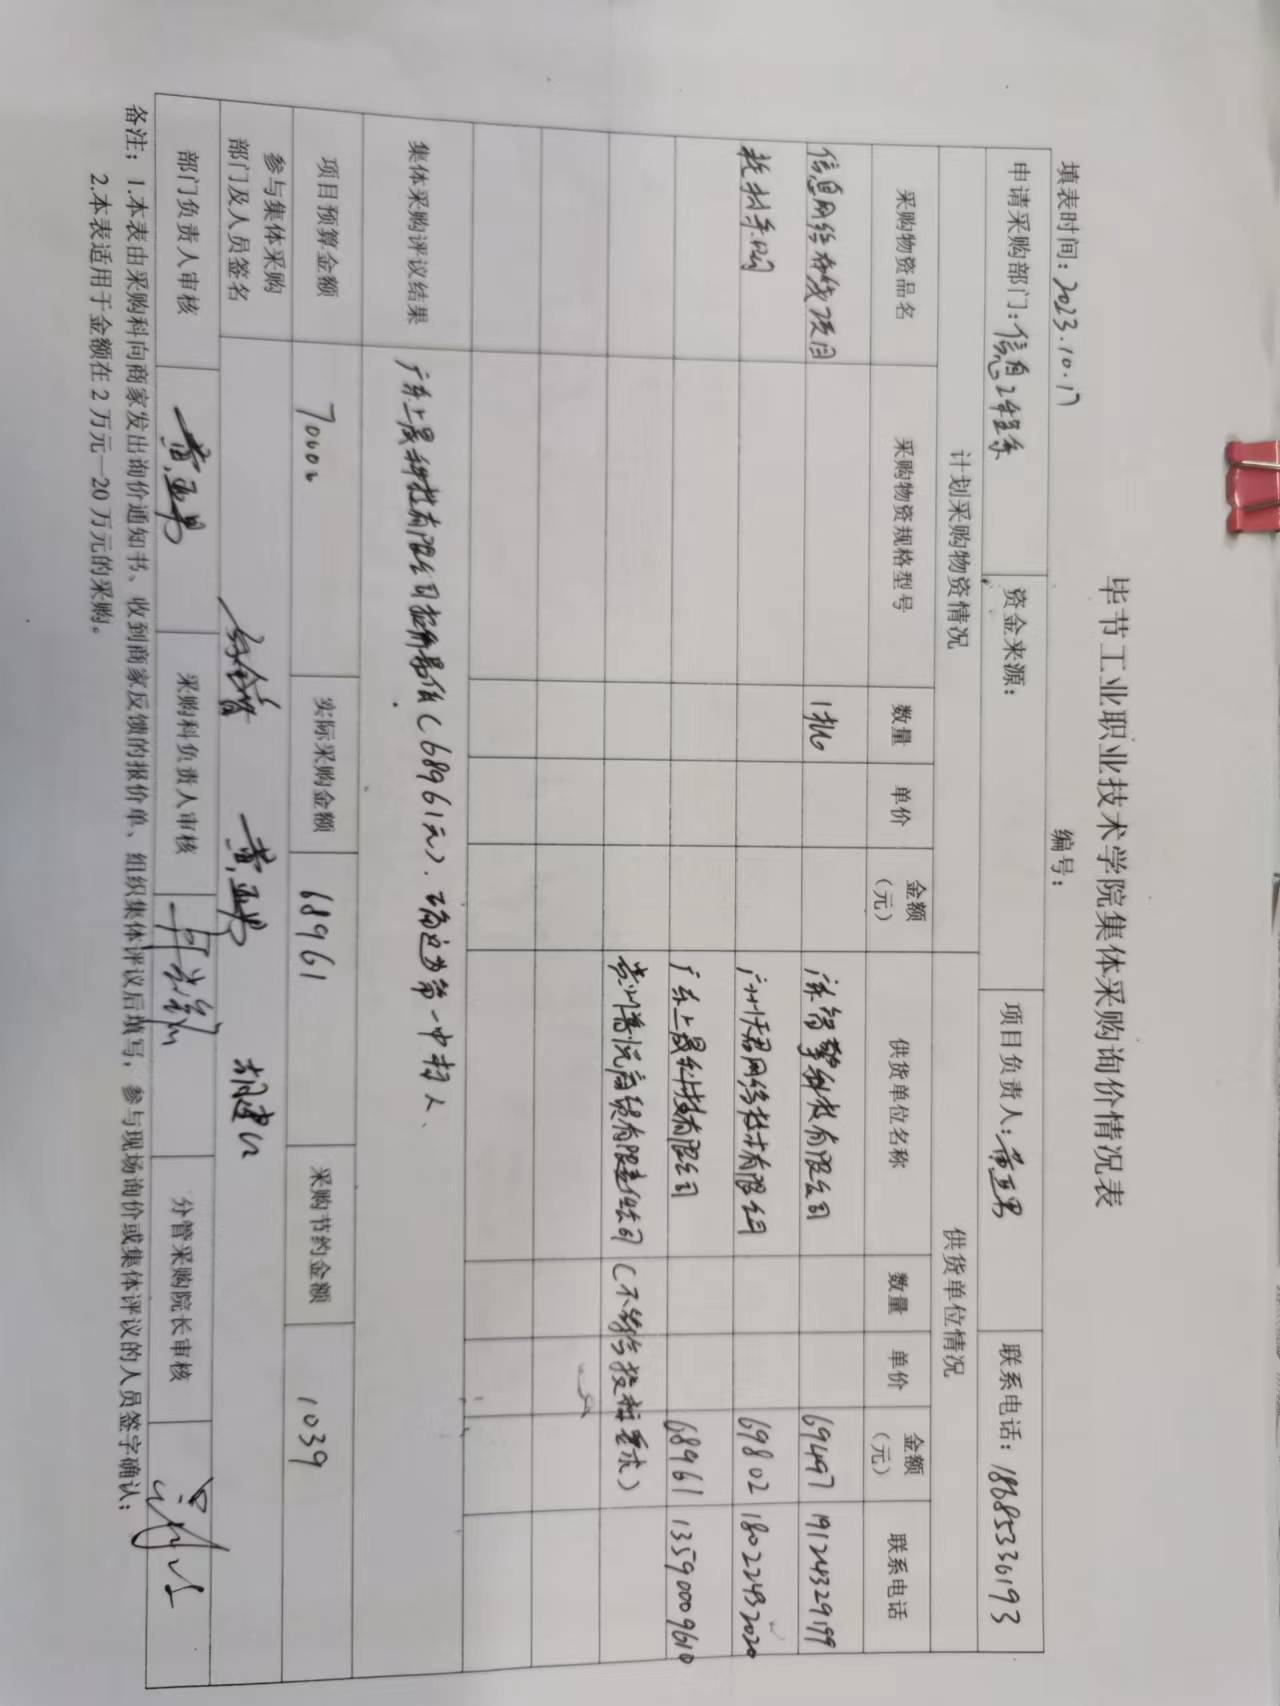 毕节工业职业技术学院集体采购询价情况表
填表时间：2023.10.17 编号：
申请采购部门：信息工程系 资金来源： 项目负责人： 联系电话：18685336193
计划采购物资情况 供货单位情况
采购物资品名 采购物资规格型号 数量 单价 金额（元） 供货单位名称 数量 单价 金额（元） 联系电话
信息网络布线项目 1批 智擎科技有限公司 69497 19124329199
耗材采购 广州天君网络技术有限公司 69802 18022432020
广东上晟科技有限公司 68961 13590009610
贵州 商贸有限责任公司（不符合投标要求）
集体采购评议结果 广东上晟科技有限公司报价最低（68961元）．确定为第一中标人．
项目预算金额 70000 实际采购金额 68961 采购节约金额 1039
参与集体采购部门及人员签名
部门负责人审核 采购科负责人审核 分管采购院长审核
备注：1.本表由采购科向商家发出询价通知书、收到商家反馈的报价单、组织集体评议后填写，参与现场询价或集体评议的人员签字确认；
2.本表适用于金额在2万元—20万元的采购。